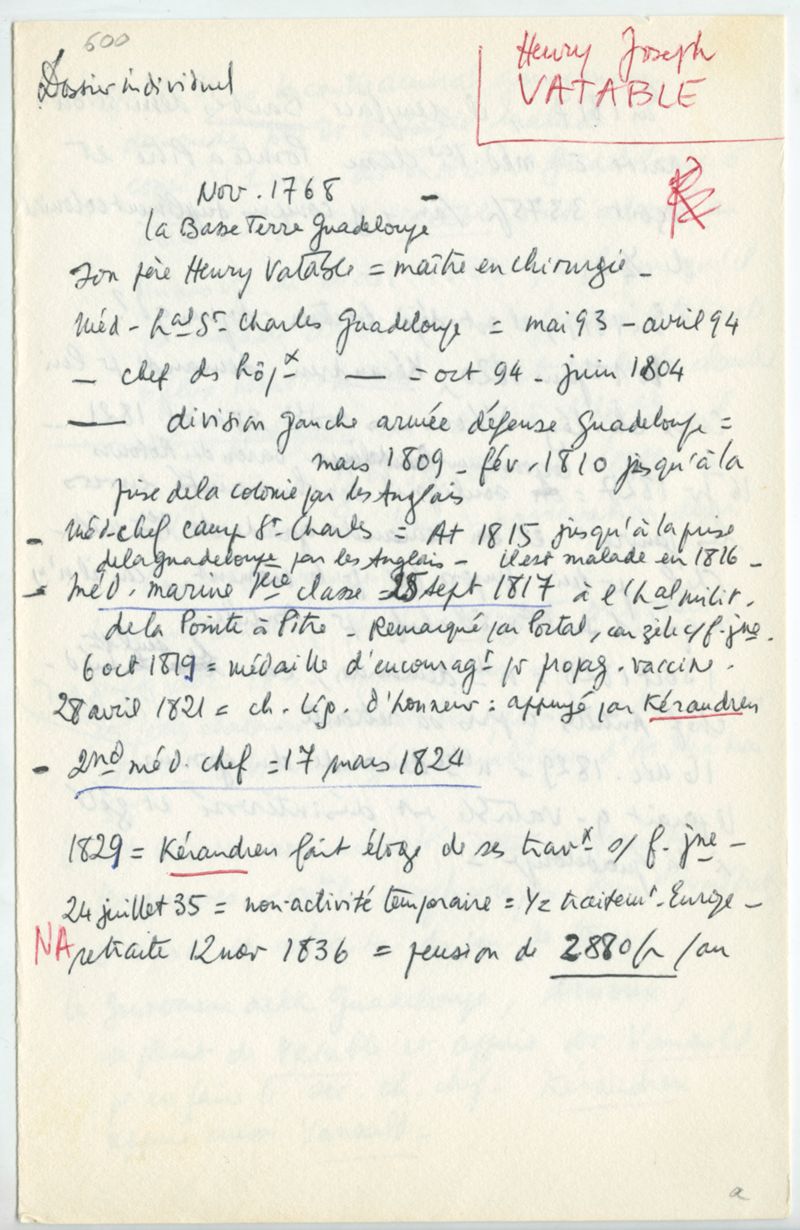 500
Dossier individuel
Henry Joseph
VATABLE
Nov. 1768 -
la Basse Terre Guadeloupe
Son père Henry Vatable = maître en chirurgie -
Méd - hal St Charles Guadeloupe = mai 93 - avril 94
— chef des hôpx — = oct 94 - juin 1804
— division gauche armée défense Guadeloupe =
mars 1809 - fév. 1810 jusqu'à la
prise de la colonie par les Anglais
- Méd-chef camp St Charles = At 1815 jusqu'à la prise
de la guadeloupe par les Anglais - il est malade en 1816 -
- Méd. marine 1ère classe = 25 sept 1817 à l'hal milit.
de la Pointe à Pitre - Remarqué par Portal, con zèle c/ f. jne.
6 oct 1819 = médaille d'encouragt pr propag. vaccine.
28 avril 1821 = ch. Lég. d'honneur : appuyé par Kérandren
- 2nd méd. chef = 17 mars 1824
1829 = Kérandren fait éloge de ses travx s/ f. jne -
24 juillet 35 = non-activité temporaire = 1/2 traitemt. Europe -
NA retraite 12 nov 1836 = pension de 2880 fr /an
a